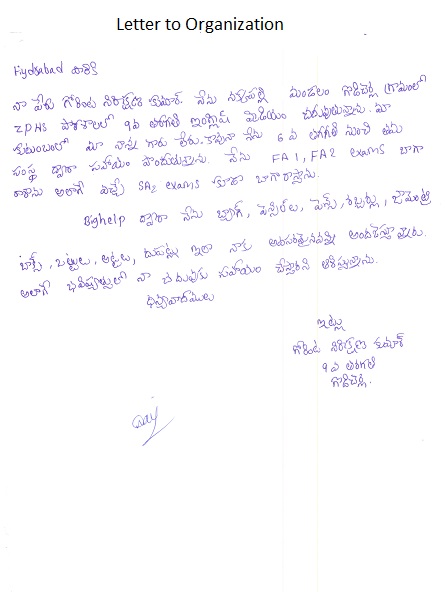 Letter to Organization
Hyderabad వారికి
నా పేరు గోరింట నిరీక్షణ కుమార్. నేను నక్కపల్లి మండలం గొడిచెర్ల గ్రామంలో
ZPHS పాఠశాలలో 9వ తరగతి ఇంగ్లీష్ మీడియం చదువుతున్నాను. మా
కుటుంబంలో మా నాన్న గారు లేరు. కావునా నేను 6వ తరగతి నుంచి తమ
సంస్థ ద్వారా సహాయం పొందుతున్నాను. నేను FA1, FA2 exams బాగా
రాశాను అలాగే వచ్చే SA2 exams కూడా బాగా రాస్తాను.
Bighelp ద్వారా నేను బ్యాగ్, పెన్సిల్‌లు, పెన్స్, రబ్బర్లు, జామెంట్రి
బాక్స్, బట్టలు, అట్టలు, దుప్పట్లు ఇలా నాకు అవసరమైనవన్ని అందచేస్తున్నారు.
అలాగే భవిష్యత్తులో నా చదువుకు సహాయం చేస్తారని ఆశిస్తున్నాను.
ధన్యవాదములు
ఇట్లు
గోరింట నిరీక్షణ కుమార్
9వ తరగతి
గొడిచెర్ల.